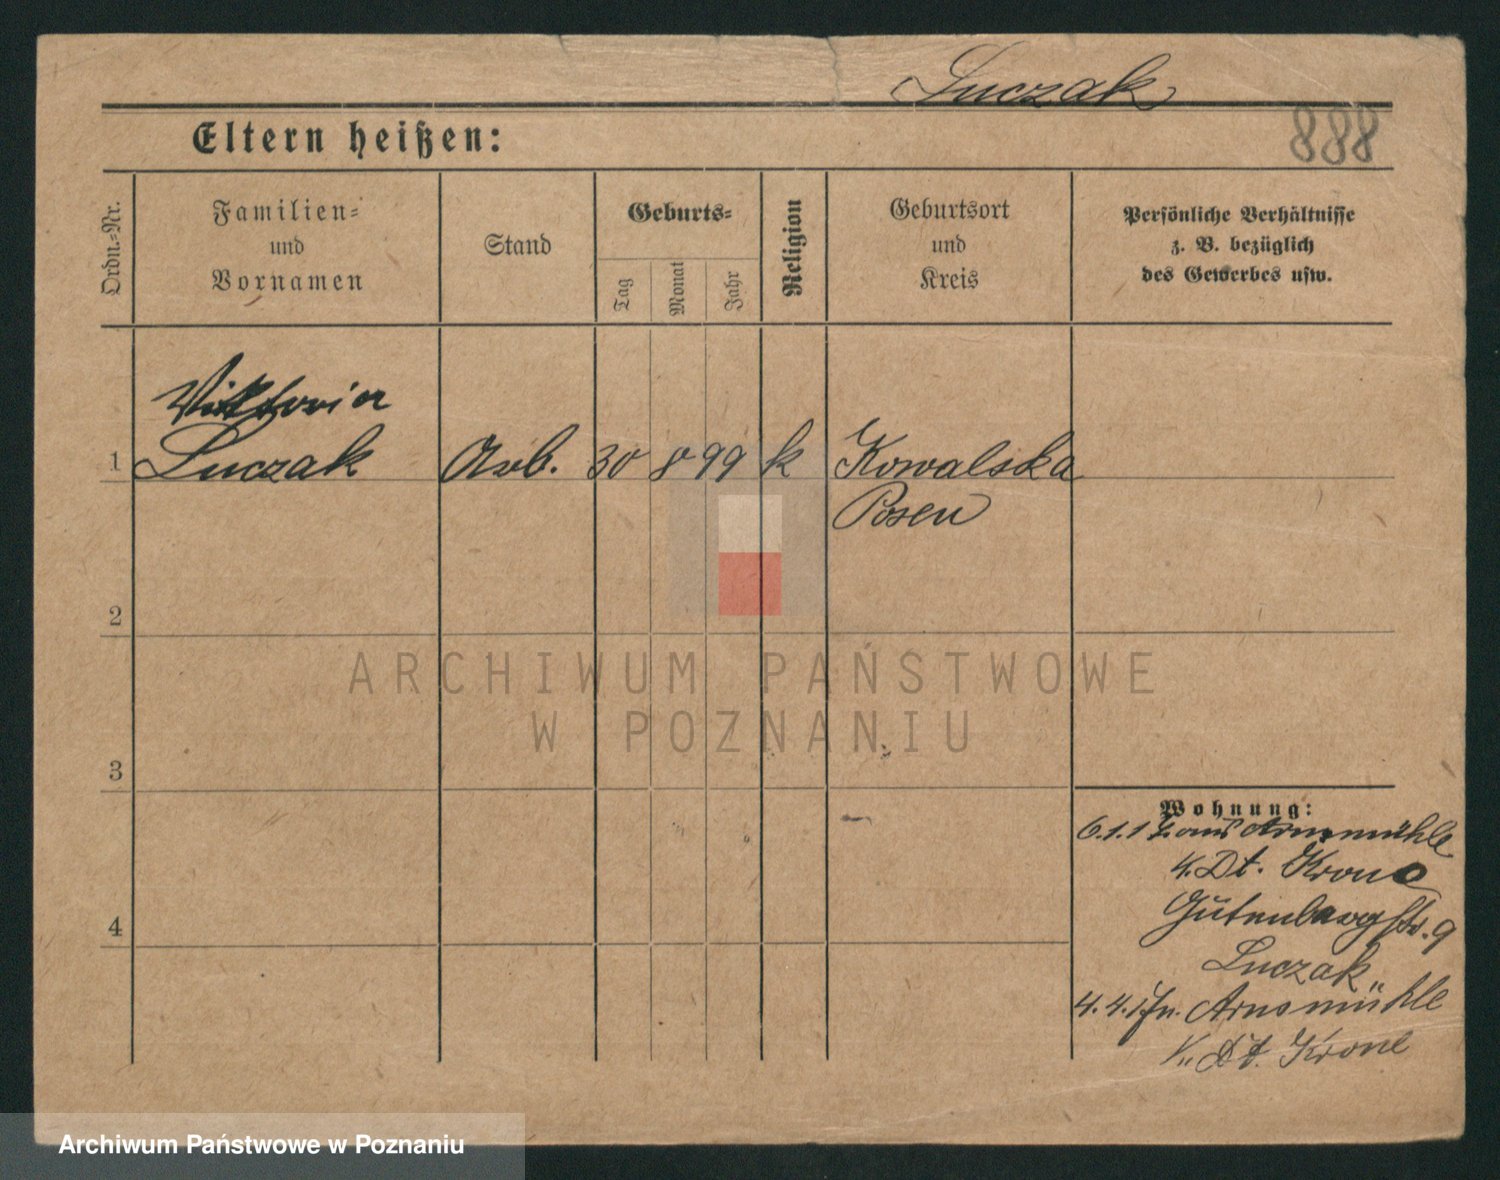 Luczak
888
Eltern heißen:
Ordn.-Nr.
Familien-
und
Vornamen
Stand
Geburts-
Tag
Monat
Jahr
Religion
Geburtsort
und
Kreis
Persönliche Verhältnisse
z. B. bezüglich
des Gewerbes usw.
Viktoria
1 Luczak Arb. 30 8 99 k Kowalska
Posen
2
ARCHIWUM PAŃSTWOWE
W POZNANIU
3
Wohnung:
6.1.1 aus Arnsmühle
Dt. Krone
Gutenbergstr. 9
4
Luczak
4.4. Arnsmühle
Dt. Krone
Archiwum Państwowe w Poznaniu